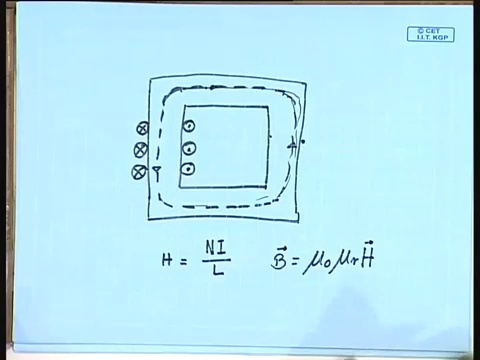 © CET
I.I.T. KGP
H = NI / L
B⃗ = μ₀ μr H⃗